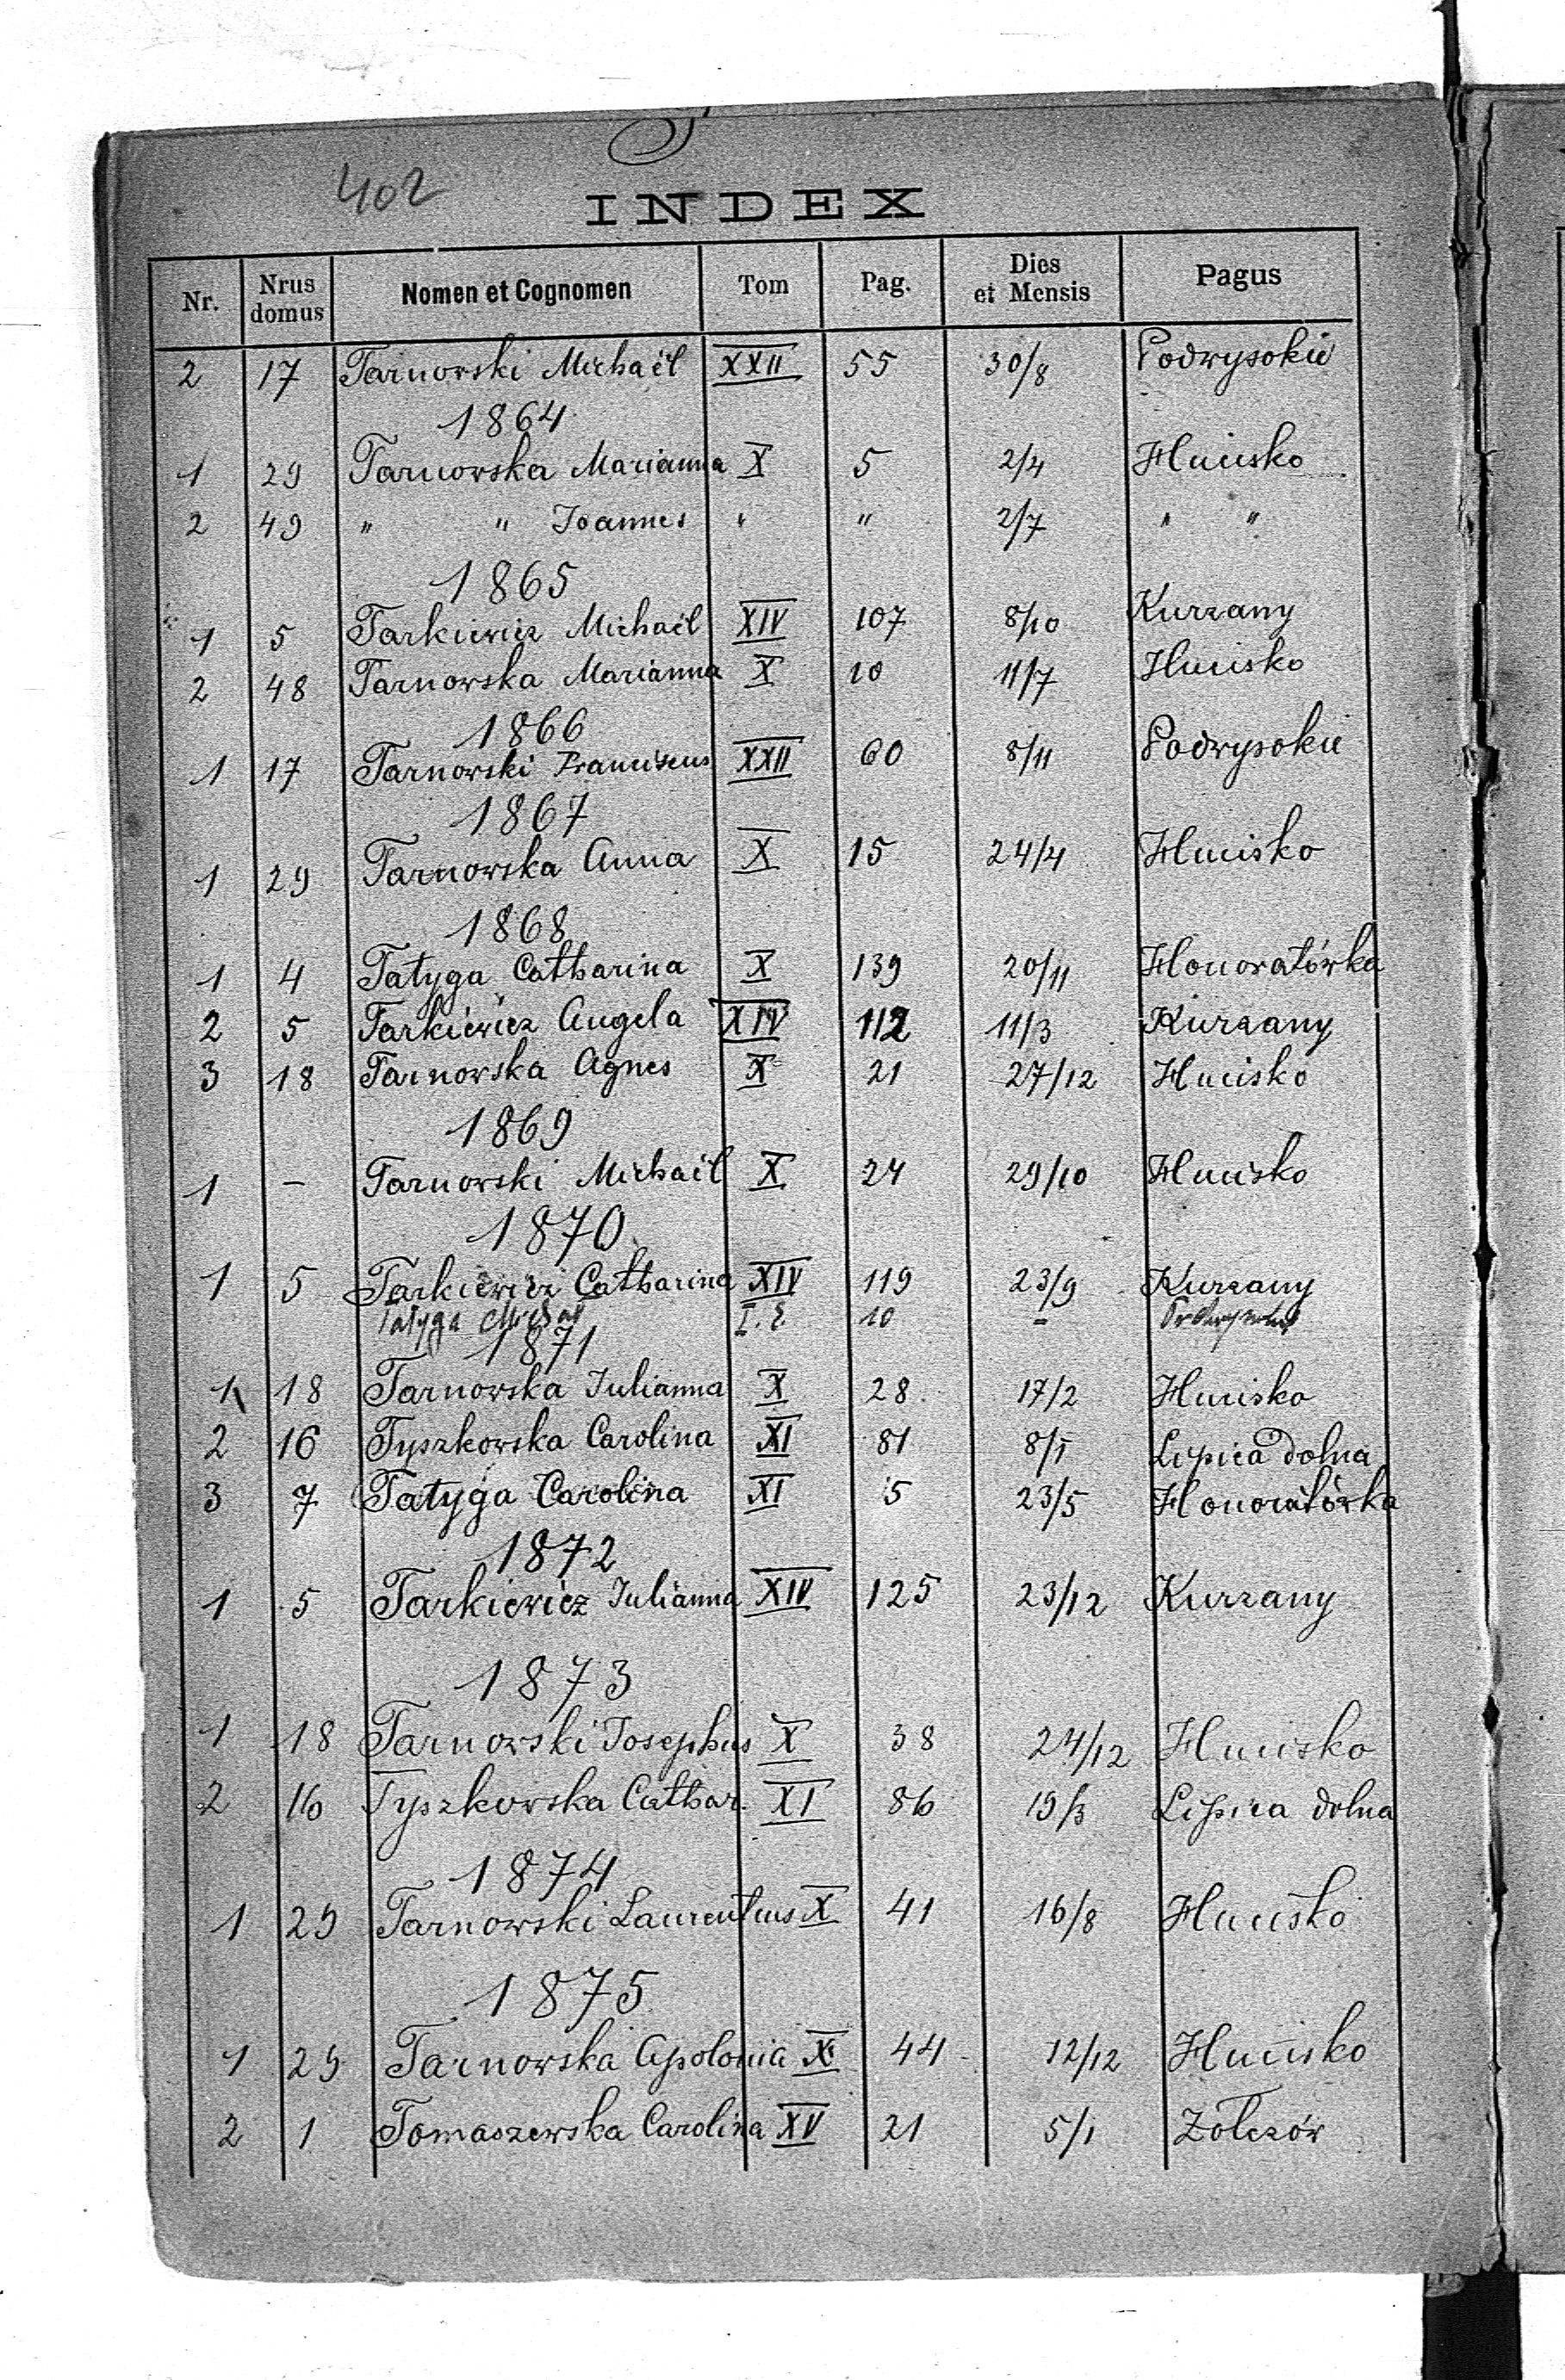 402
INDEX
Nr. Nrus domus Nomen et Cognomen Tom Pag. Dies et Mensis Pagus
2 17 Tarnowski Michaël XXII 55 30/8 Podwysokie
1864
1 29 Tarnowska Marianna X 5 2/4 Hucisko
2 49 " " Joannes " " 2/7 " "
1865
1 5 Tarkiewicz Michaël XIV 107 8/10 Kurzany
2 48 Tarnowska Marianna X 10 11/7 Hucisko
1866
1 17 Tarnowski Franciscus XXII 60 8/11 Podwysokie
1867
1 29 Tarnowska Anna X 15 24/4 Hucisko
1868
1 4 Tatyga Catharina X 139 20/11 Honoratówka
2 5 Tarkiewicz Angela XIV 112 11/3 Kurzany
3 18 Tarnowska Agnes X 21 27/12 Hucisko
1869
1 – Tarnowski Michaël X 24 29/10 Hucisko
1870
1 5 Tarkiewicz Catharina XIV 119 23/9 Kurzany
Tatyga 10 –
1871
1 18 Tarnowska Julianna X 28 17/2 Hucisko
2 16 Tyszkowska Carolina XI 81 8/1 Lipica dolna
3 7 Tatyga Carolina XI 5 23/5 Honoratówka
1872
1 5 Tarkiewicz Julianna XIV 125 23/12 Kurzany
1873
1 18 Tarnowski Josephus X 38 24/12 Hucisko
2 16 Tyszkowska Cathar. XI 86 19/3 Lipica dolna
1874
1 29 Tarnowski Laurentius X 41 16/8 Hucisko
1875
1 29 Tarnowska Apolonia X 44 12/12 Hucisko
2 1 Tomaszewska Carolina XV 21 5/1 Żołczów